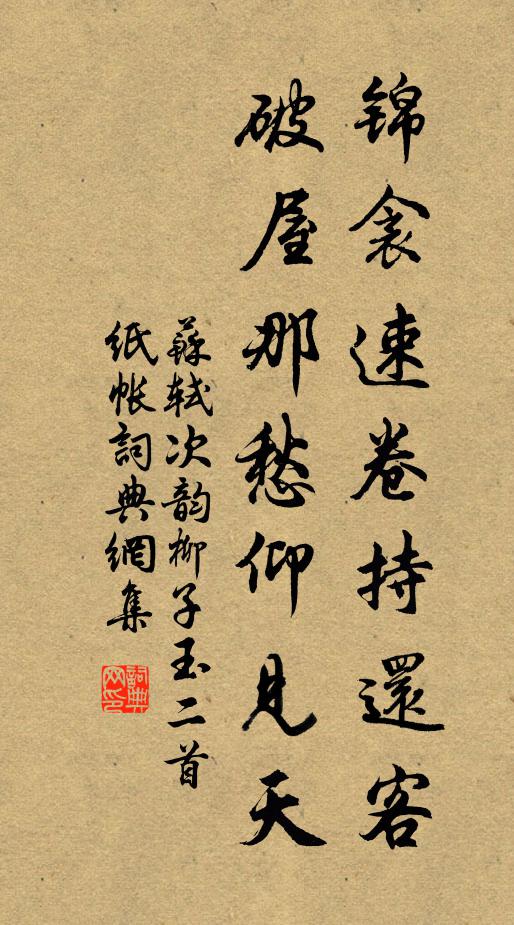 锦衾速卷持還客
破屋那愁仰見天
蘇軾次韵柳子玉二首
紙帐詞典網集
詞典网印